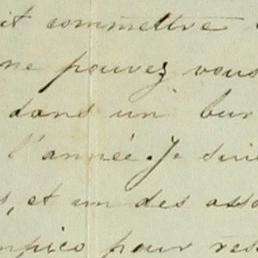 it commettre
ne pouvez vous
dans un bur
l'année. Je suis
, et un des asso
mpico pour res